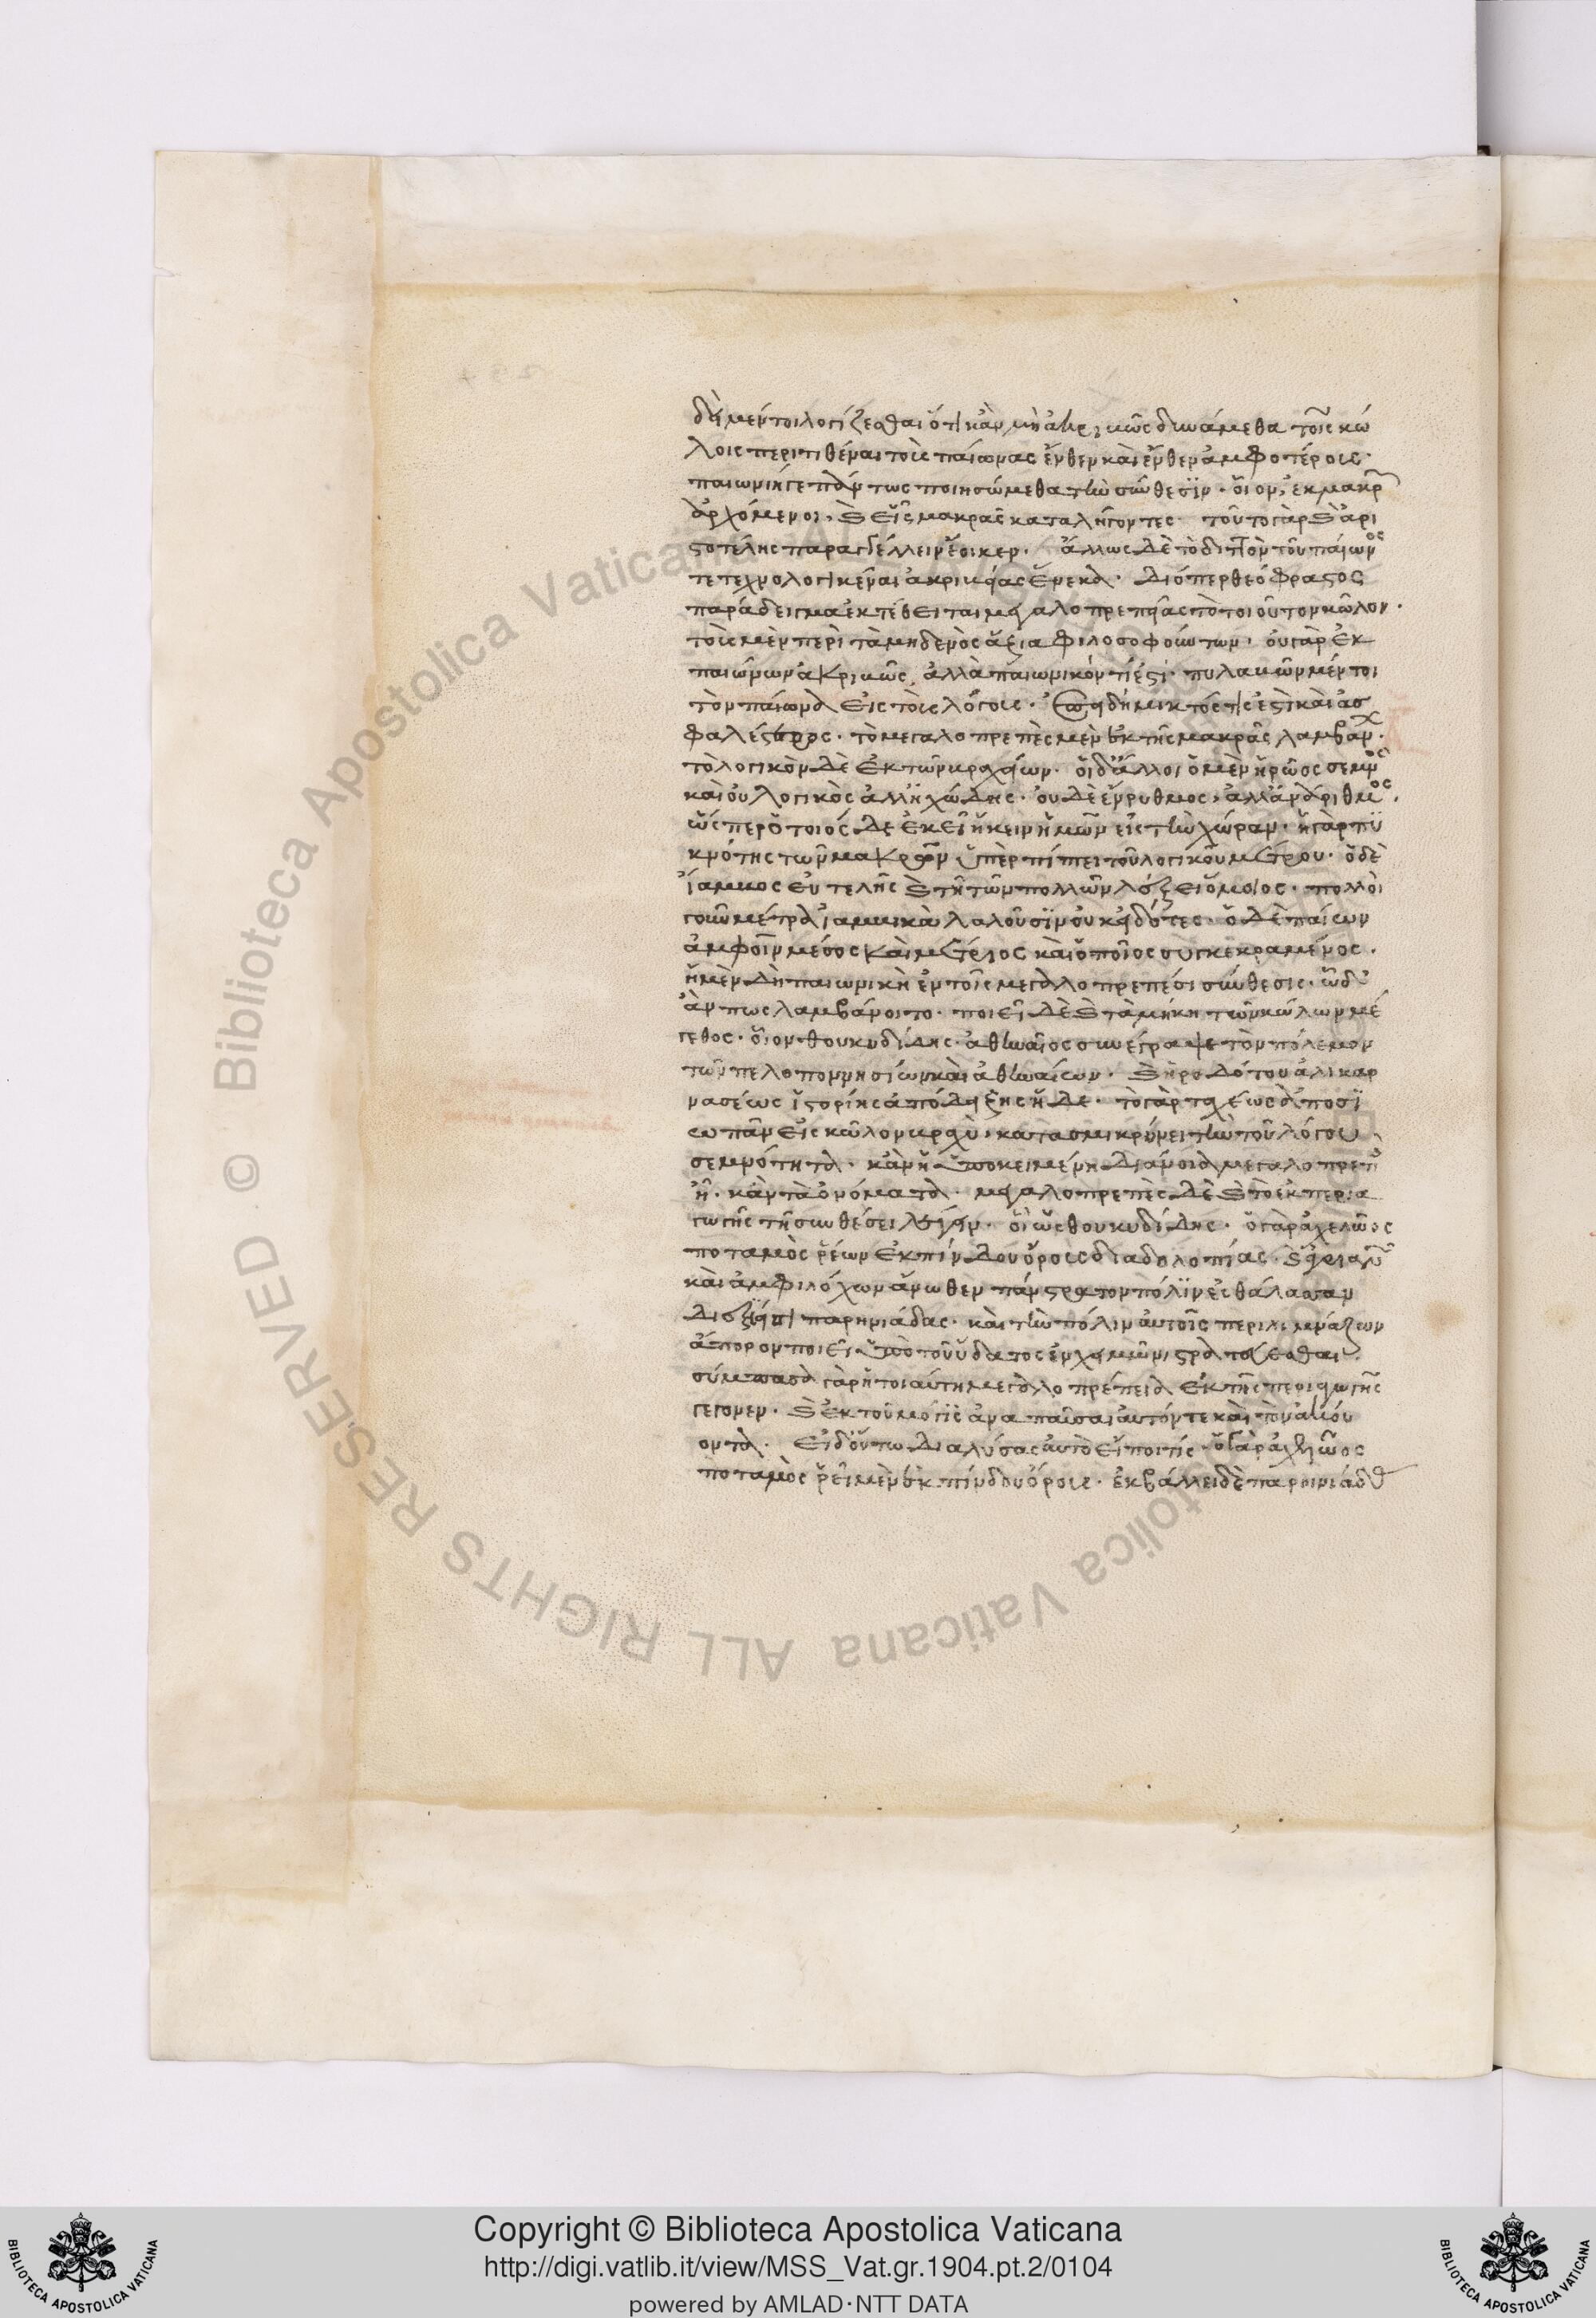 δεῖ μέντοι λογίζεσθαι ὅτι κἂν μὴ ἀκριβῶς δυνάμεθα τοῖς κώ
λοις περιτιθέναι τοὺς παίωνας ἔνθεν καὶ ἔνθεν ἀμφοτέρους.
παιωνικήν γε πάντως ποιησώμεθα τὴν σύνθεσιν. οἷον, ἐκ μακρ
ἀρχόμενοι, καὶ εἰς μακρὰς καταλήγοντες. τοῦτο γὰρ καὶ ἀρι
στοτέλης παραγγέλλειν ἔοικεν. ἄλλως δὲ τὸ διττὸν τοῦ παίωνος
τετεχνολογηκέναι ἀκριβείας ἕνεκα. διόπερ θεόφραστος
παράδειγμα ἐκτέθειται μεγαλοπρεπείας τὸ τοιοῦτον κῶλον.
τῶν μὲν περὶ τὰ μηδενὸς ἄξια φιλοσοφούντων. οὐ γὰρ ἐκ
παιώνων ἀκριβῶς, ἀλλὰ παιωνικόν τι ἐστί. παραλαβεῖν μέντοι
τὸν παίωνα εἰς τοὺς λόγους. ἐπειδὴ μικτός τις ἐστὶ καὶ ἀσ
φαλέστερος. τὸ μεγαλοπρεπὲς μὲν ἐκ τῆς μακρᾶς λαμβάν.
τὸ λογικὸν δὲ ἐκ τῶν βραχειῶν. οἱ δ' ἄλλοι ὁ μὲν ἡρῷος σεμνὸς
καὶ οὐ λογικὸς ἀλλ' ἠχώδης. οὐδὲ εὔρυθμος, ἀλλ' ἀνάριθμος.
ὥσπερ ὁ τοιόσδε ἔχει ἥκειν ἡμῶν εἰς τὴν χώραν. ἡ γὰρ πυ
κνότης τῶν μακρῶν ὑπερπίπτει τοῦ λογικοῦ μέτρου. ὁ δὲ
ἴαμβος εὐτελὴς καὶ τῇ τῶν πολλῶν λέξει ὅμοιος. πολλοὶ
γοῦν μέτρα ἰαμβικὰ λαλοῦσιν οὐκ εἰδότες. ὁ δὲ παίων
ἀμφοῖν μέσος καὶ μέτριος καὶ ὁποῖος συγκεκραμένος.
ἡ μὲν δὴ παιωνικὴ ἐν τοῖς μεγαλοπρεπέσι σύνθεσις, ὧδ'
ἄν πως λαμβάνοιτο. ποιεῖ δὲ καὶ τὰ μήκη τῶν κώλων μέ
γεθος. οἷον θουκυδίδης ἀθηναῖος συνέγραψε τὸν πόλεμον
τῶν πελοποννησίων καὶ ἀθηναίων. καὶ ἡροδότου ἁλικαρ
νασέως ἱστορίης ἀπόδεξις ἥδε. τὸ γὰρ ταχέως ἀποσι
ωπᾶν εἰς κῶλον βραχὺ, κατασμικρύνει τὴν τοῦ λόγου
σεμνότητα. κἂν ἡ ὑποκειμένη διάνοια μεγαλοπρεπὴς
ᾖ. κἂν τὰ ὀνόματα. μεγαλοπρεπὲς δὲ καὶ τὸ ἐκ περια
γωγῆς τῇ συνθέσει λέγειν. οἷον ὡς θουκυδίδης. ὁ γὰρ ἀχελῶος
ποταμὸς ῥέων ἐκ πίνδου ὄρους διὰ δολοπίας. καὶ ἀγριανῶν
καὶ ἀμφιλόχων ἄνωθεν πὰν στράτον πόλιν ἐς θάλασσαν
διεξιεὶς παρ' ηνιάδας. καὶ τὴν πόλιν αὐτοῖς περιλιμνάζων
ἄπορον ποιεῖ ὑπὸ τοῦ ὕδατος ἐν χειμῶνι στρατεύεσθαι.
σύμπασα γὰρ ἡ τοιαύτη μεγαλοπρέπεια ἐκ τῆς περιαγωγῆς
γέγονεν. καὶ ἐκ τοῦ μόγις ἀναπαῦσαι αὐτόν τε καὶ τὸν ἀκού
οντα. εἰ δ' οὕτω διαλύσας αὐτὸ εἴποι τις. ὁ γὰρ ἀχελῶος
ποταμὸς ῥεῖ μὲν ἐκ πίνδου ὄρους. ἐκβάλλει δὲ παρ' οινιάδας
Copyright © Biblioteca Apostolica Vaticana
http://digi.vatlib.it/view/MSS_Vat.gr.1904.pt.2/0104
powered by AMLAD·NTT DATA
BIBLIOTECA APOSTOLICA VATICANA
BIBLIOTECA APOSTOLICA VATICANA
© Biblioteca Apostolica Vaticana ALL RIGHTS RESERVED